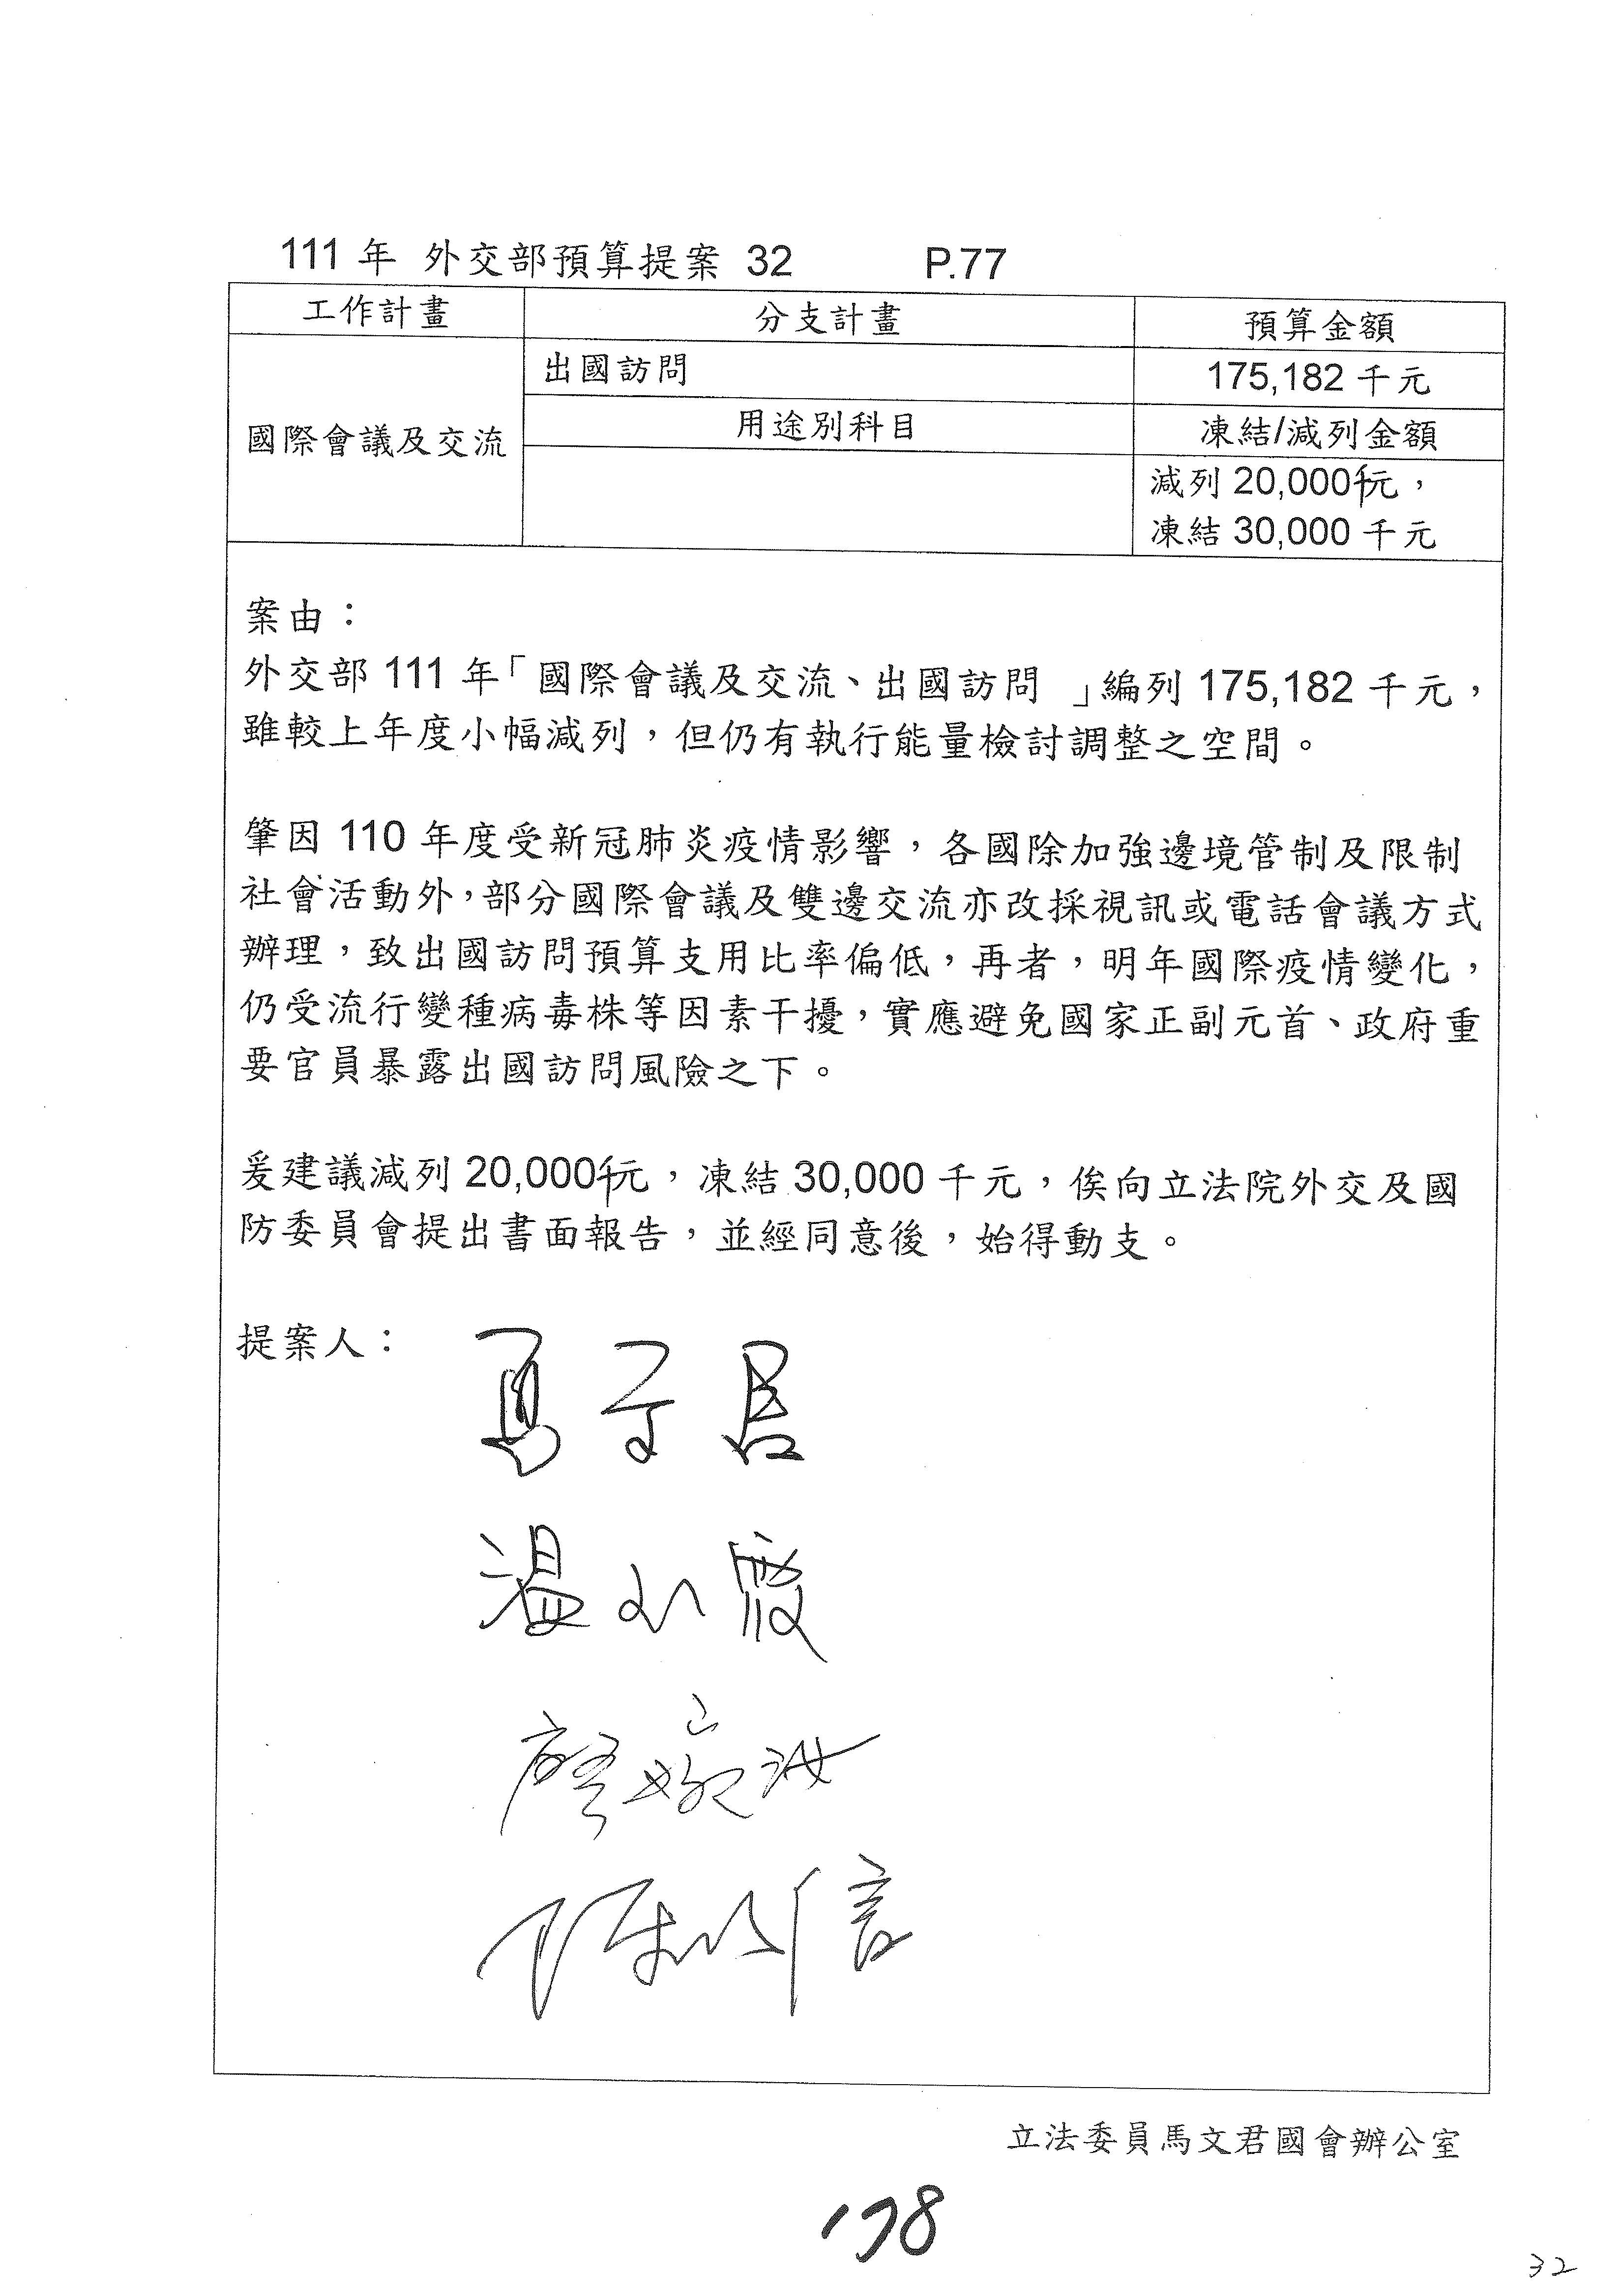 111 年 外交部預算提案 32 P.77
工作計畫 分支計畫 預算金額
國際會議及交流 出國訪問 175,182 千元
用途別科目 凍結/減列金額
減列 20,000千元，
凍結 30,000 千元
案由：
外交部 111 年「國際會議及交流、出國訪問 」編列 175,182 千元，
雖較上年度小幅減列，但仍有執行能量檢討調整之空間。
肇因 110 年度受新冠肺炎疫情影響，各國除加強邊境管制及限制
社會活動外，部分國際會議及雙邊交流亦改採視訊或電話會議方式
辦理，致出國訪問預算支用比率偏低，再者，明年國際疫情變化，
仍受流行變種病毒株等因素干擾，實應避免國家正副元首、政府重
要官員暴露出國訪問風險之下。
爰建議減列 20,000千元，凍結 30,000 千元，俟向立法院外交及國
防委員會提出書面報告，並經同意後，始得動支。
提案人：
馬文君
溫玉霞
廖婉汝
立法委員馬文君國會辦公室
178
32